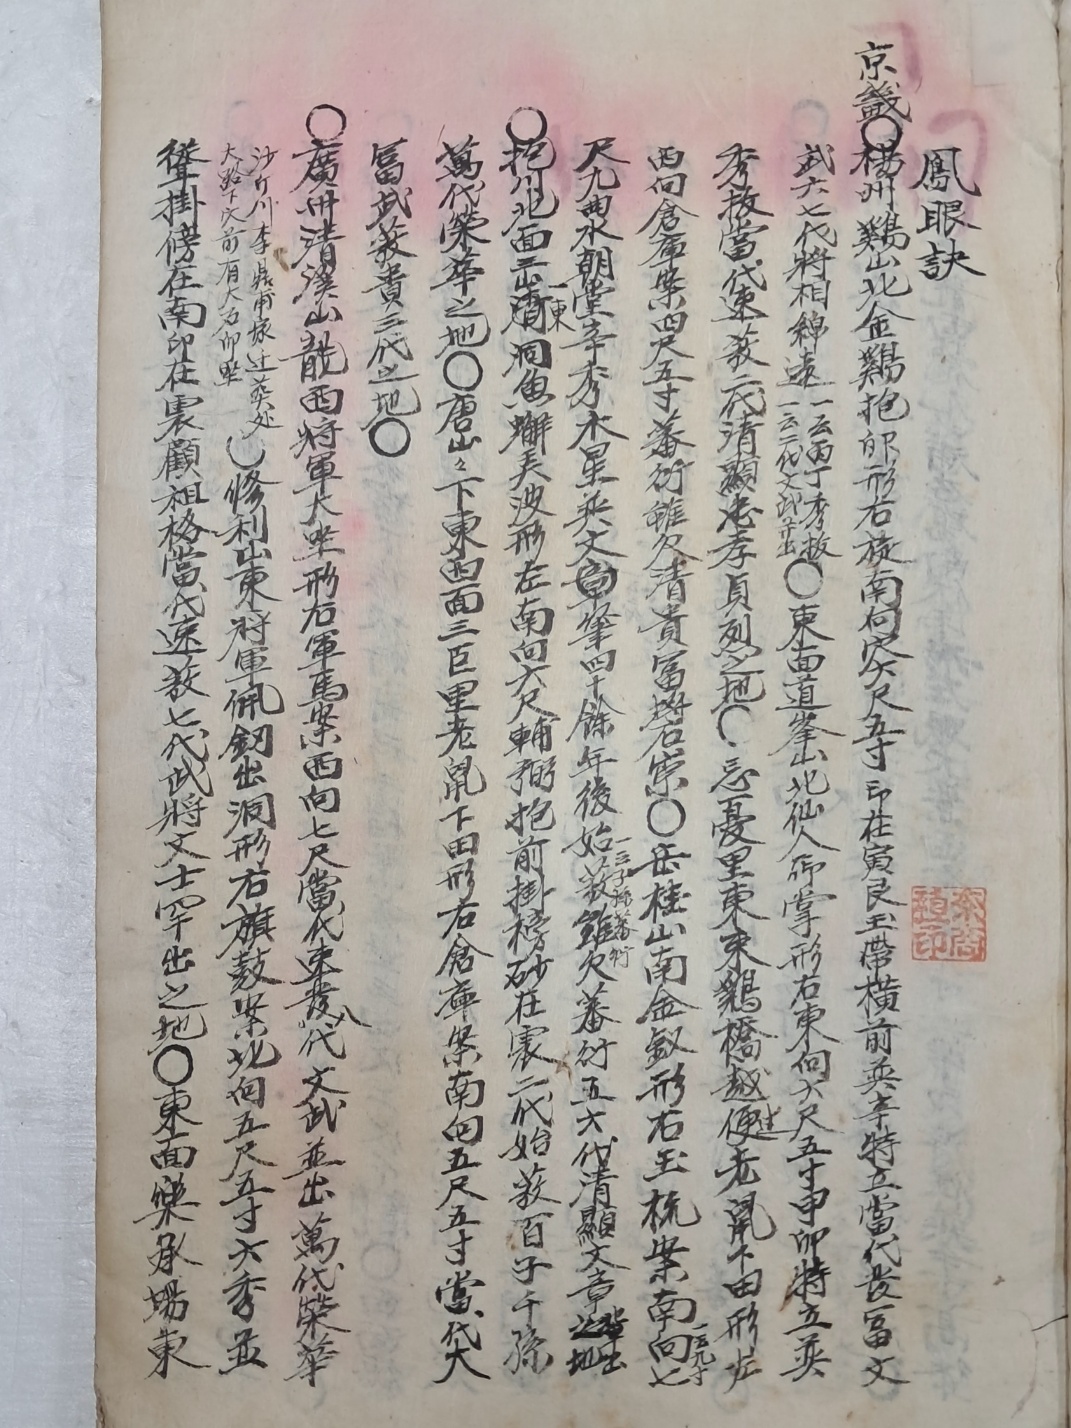 鳳眼訣
京畿○楊州鷄山北金鷄抱卵形右旋南向穴六尺五寸印在寅艮玉帶橫前英辛特立當代發富文
武六七代將相綿遠一云丙丁秀拔一云二代文武幷出○東面道峯山北仙人仰掌形右東向六尺五寸申卯特立英
秀拔當代速發二代淸顯忠孝貞烈之地○忘憂里東東鷄橋越便老鼠下田形左
西向倉庫案四尺五寸蕃衍雖欠淸貴富將名宗○岳桂山南金釵形右玉梳案南向七一云九寸
尺九曲水朝堂辛秀水星英文筆肇四十餘年後始發雖欠蕃衍一云子孫蕃衍五六代淸顯文章之地
抱川北面三山淸洞魚獺弄波形左南向六尺輔弼抱前掛榜砂在震二代始發百子千孫
萬代榮華之地○唐山々下東西面三巨里老鼠下田形右倉庫案南向五尺五寸當代大
富武發貴三代之地○
○廣州淸溪山龍西將軍大坐形右軍馬案西向七尺當代速發八代文武並出萬代榮華
沙斤川李鼎甫族迁葬處
大路下穴前有大石卯坐
○修利山東將軍佩釼出洞形右旗鼓案北向五尺五寸六秀並
聳掛榜在南印在震顧祖格當代速發七代武將文士罕出之地○東面樂承場東